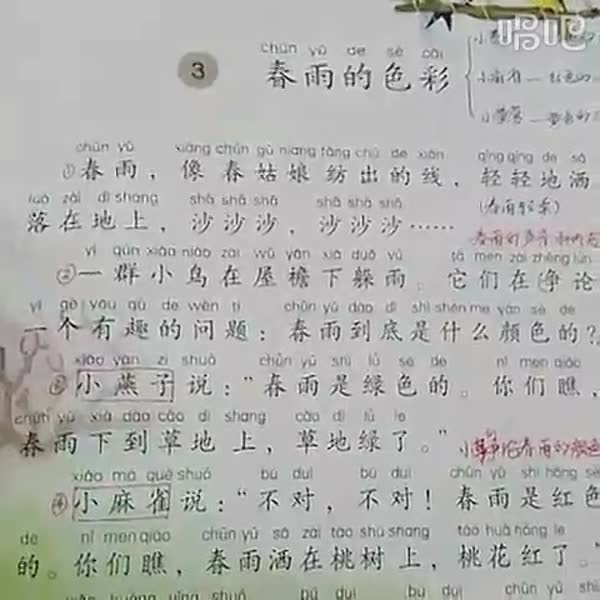 唱吧
chūn yǔ de sè cǎi
3 春雨的色彩
小燕
小麻雀—红色的
小黄莺—黄色的
chūn yǔ xiàng chūn gū niang fǎng chū de xiàn qīng qīng de sǎ
①春雨，像春姑娘纺出的线，轻轻地洒
luò zài dì shang shā shā shā shā shā shā
落在地上，沙沙沙，沙沙沙……
(春雨轻柔)
春雨的声音
yì qún xiǎo niǎo zài wū yán xià duǒ yǔ tā men zài zhēng lùn
②一群小鸟在屋檐下躲雨。它们在争论
yí gè yǒu qù de wèn tí chūn yǔ dào dǐ shì shén me yán sè de
一个有趣的问题：春雨到底是什么颜色的？
xiǎo yàn zi shuō chūn yǔ shì lǜ sè de nǐ men qiáo
③小燕子说：“春雨是绿色的。你们瞧，
chūn yǔ xià dào cǎo dì shang cǎo dì lǜ le
春雨下到草地上，草地绿了。”
春雨的颜色
xiǎo má què shuō bú duì bú duì chūn yǔ shì hóng sè
④小麻雀说：“不对，不对！春雨是红色
de nǐ men qiáo chūn yǔ sǎ zài táo shù shang táo huā hóng le
的。你们瞧，春雨洒在桃树上，桃花红了。”
xiǎo huáng yīng shuō bú duì bú duì chūn yǔ